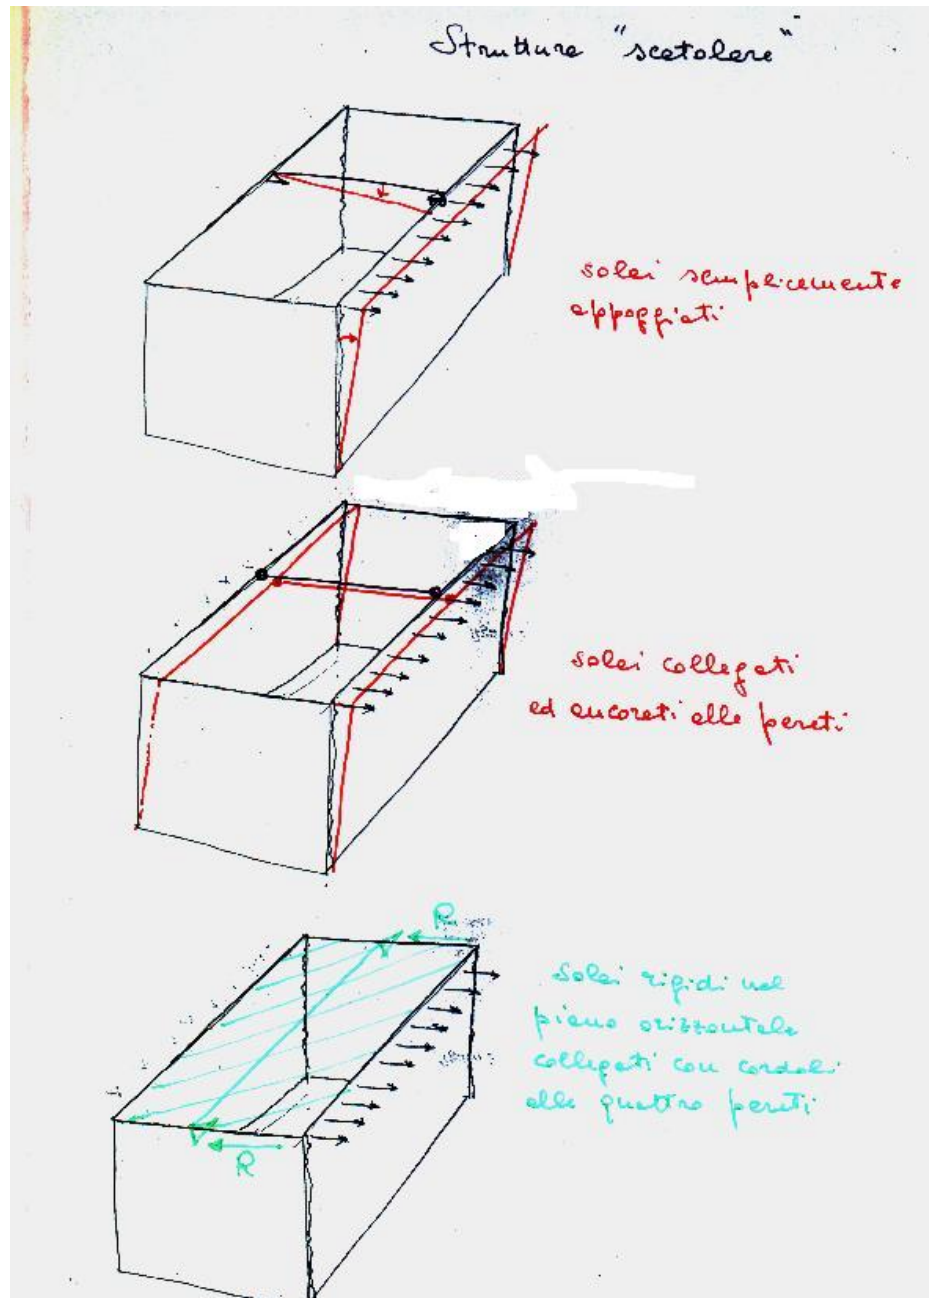 Strutture "scatolari"
solai semplicemente
appoggiati
solai collegati
ed ancorati alle pareti
R
solai rigidi nel
piano orizzontale
collegati con cordoli
alle quattro pareti
R